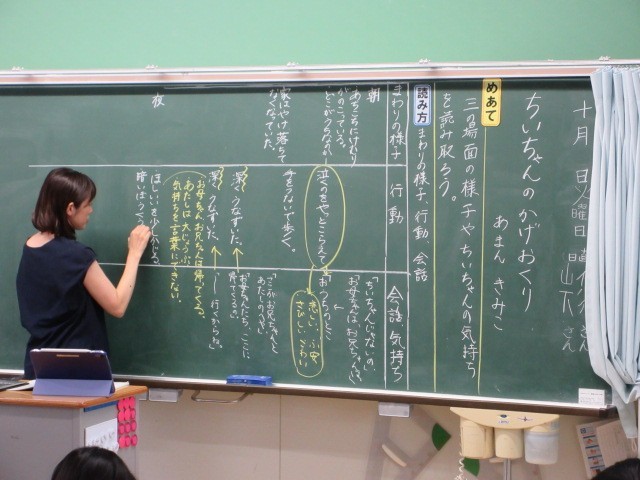 十月 日 火曜日
山下さん
さん
ちいちゃんのかげおくり
あまん きみこ
めあて
三の場面の様子やちいちゃんの気持ち
を読み取ろう。
読み方
まわりの様子、行動、会話
まわりの様子
行動
会話、気持ち
朝
あちこちにけむり
がのこっている。
家はやけ落ちて
なくなっていた。
夜
泣くのをやっとこらえて
手をつないで歩く。
深くうなずいた。
深くうなずいた。
ほしいいを少しかじる。
暗いぼうくうごう
「ちいちゃんじゃないの。
お母ちゃんは、お兄ちゃんは。」
おうちのとこ
悲しい、不安
さびしい、こわい
「ここがお兄ちゃんと
あたしのへや。」
「お母ちゃんたち、ここに
帰ってくるの。」
行くからね。」
お母ちゃんお兄ちゃんは帰ってくる。
あたしは大じょうぶ。
気持ちを言葉にできない。